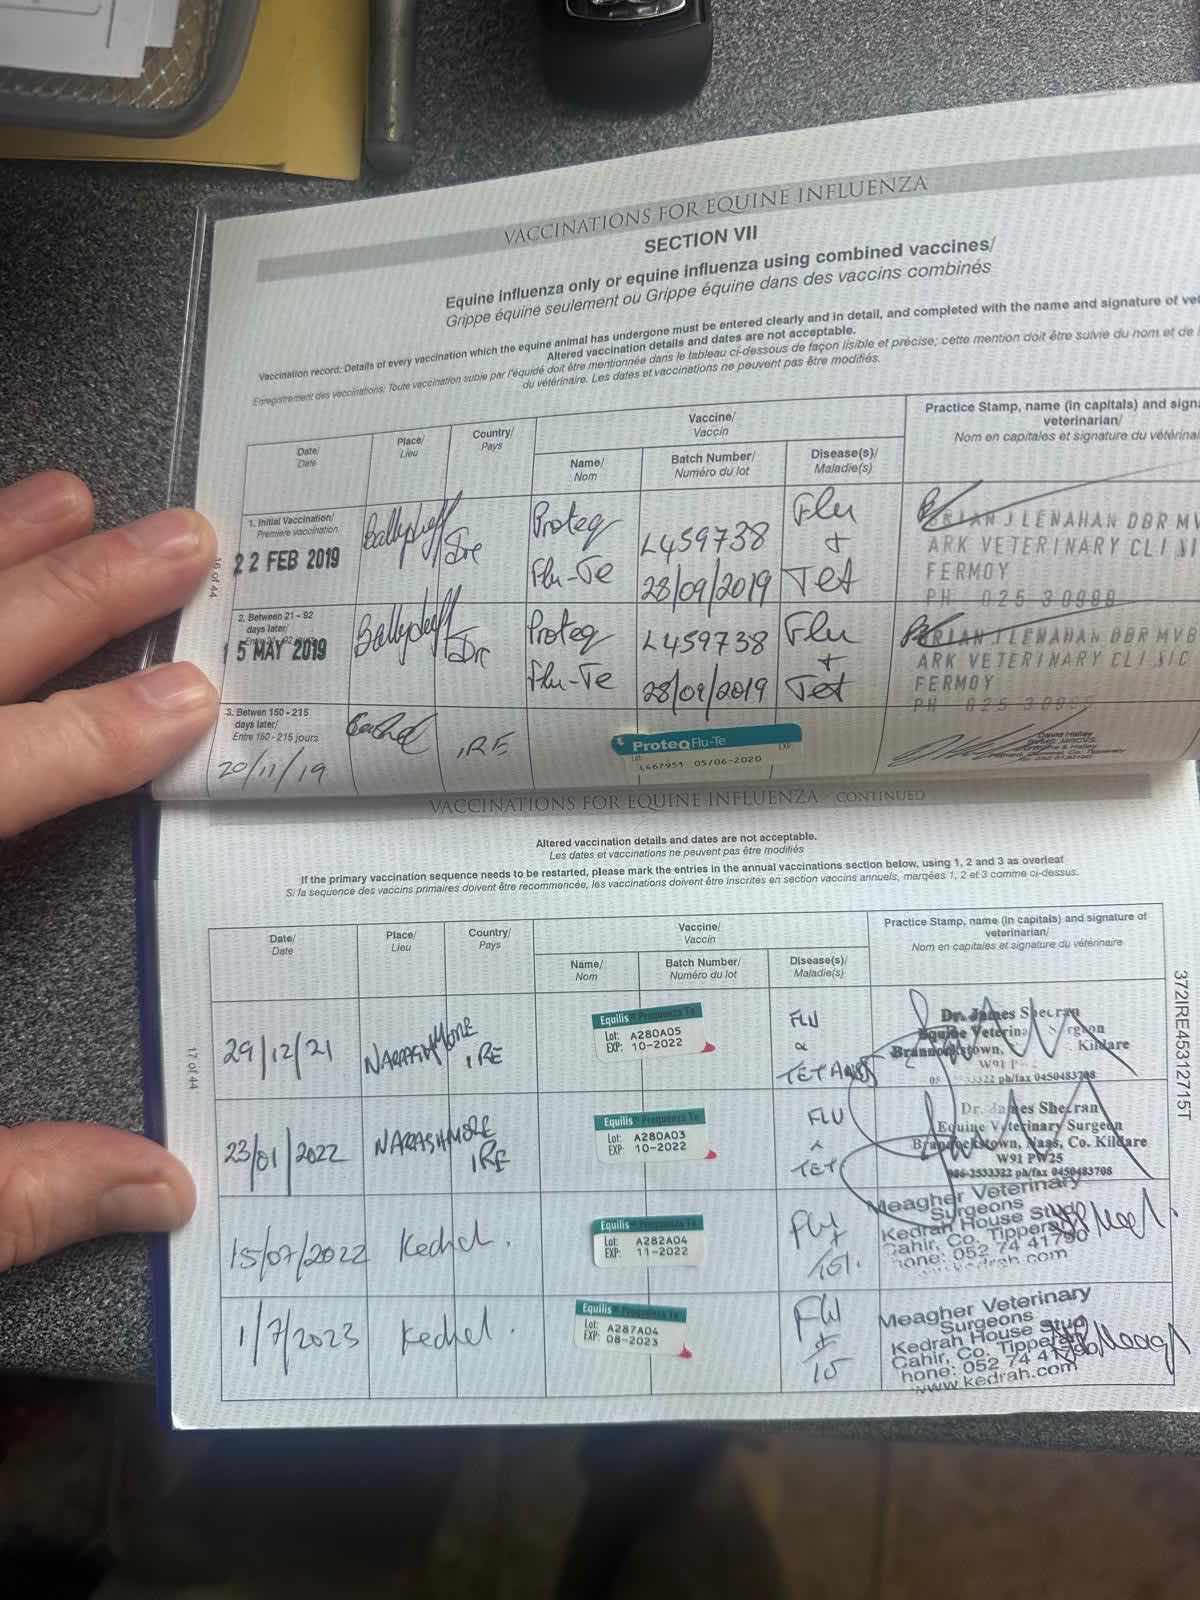 VACCINATIONS FOR EQUINE INFLUENZA
SECTION VII
Equine influenza only or equine influenza using combined vaccines/
Grippe équine seulement ou Grippe équine dans des vaccins combinés
Vaccination record: Details of every vaccination which the equine animal has undergone must be entered clearly and in detail, and completed with the name and signature of
Altered vaccination details and dates are not acceptable.
Enregistrement des vaccinations: Toute vaccination subie par l'équidé doit être mentionnée dans le tableau ci-dessous de façon lisible et précise; cette mention doit être suivie du nom et de
du vétérinaire. Les dates et vaccinations ne peuvent pas être modifiés.
Date/
Date
Place/
Lieu
Country/
Pays
Vaccine/
Vaccin
Name/
Nom
Batch Number/
Numéro du lot
Disease(s)/
Maladie(s)
Practice Stamp, name (in capitals) and
veterinarian/
Nom en capitales et signature du
1. Initial Vaccination/
Premiere vaccination
22 FEB 2019
Ire
Proteq
Flu-Te
L459738
28/09/2019
Flu
+
Tet
J LENAHAN DBR
ARK VETERINARY
FERMOY
PH 025 30988
2. Between 21 - 92
days later/
15 MAY 2019
Ire
Proteq
Flu-Te
L459738
28/09/2019
Flu
+
Tet
LENAHAN DBR MVB
ARK VETERINARY CLINIC
FERMOY
PH 025
3. Betwen 150 - 215
days later/
Entre 150 - 215 jours
20/11/19
Cashel
IRE
ProteqFlu-Te
Lot
EXP
L467951 05/06-2020
16 of 44
VACCINATIONS FOR EQUINE INFLUENZA - CONTINUED
Altered vaccination details and dates are not acceptable.
Les dates et vaccinations ne peuvent pas être modifiés
If the primary vaccination sequence needs to be restarted, please mark the entries in the annual vaccinations section below, using 1, 2 and 3 as overleaf
Si la sequence des vaccins primaires doivent être recommencée, les vaccinations doivent être inscrites en section vaccins annuels, marqées 1, 2 et 3 comme ci-dessus.
Date/
Date
Place/
Lieu
Country/
Pays
Vaccine/
Vaccin
Name/
Nom
Batch Number/
Numéro du lot
Disease(s)/
Maladie(s)
Practice Stamp, name (in capitals) and signature of
veterinarian/
Nom en capitales et signature du vétérinaire
29/12/21
IRE
Equilis Prequenza Te
Lot: A280A05
EXP: 10-2022
FLU
Dr. James Sheeran
Equine
Kildare
W91
ph/fax 0450483708
23/01/2022
IRE
Equilis Prequenza Te
Lot: A280A03
EXP: 10-2022
FLU
TET
Dr. James Sheeran
Equine Veterinary Surgeon
Brannockstown, Naas, Co. Kildare
W91 PW25
086-2533322 ph/fax 0450483708
15/07/2022
Equilis Prequenza Te
Lot: A282A04
EXP: 11-2022
Flu
Meagher Veterinary
Surgeons
Kedrah House Stud
Cahir, Co. Tipperary
hone: 052 74 41790
1/7/2023
Equilis Prequenza Te
Lot: A287A04
EXP: 08-2023
Meagher Veterinary
Surgeons
Kedrah House Stud
Cahir, Co. Tipperary
hone: 052 74
www.kedrah.com
17 of 44
372IRE45312715T